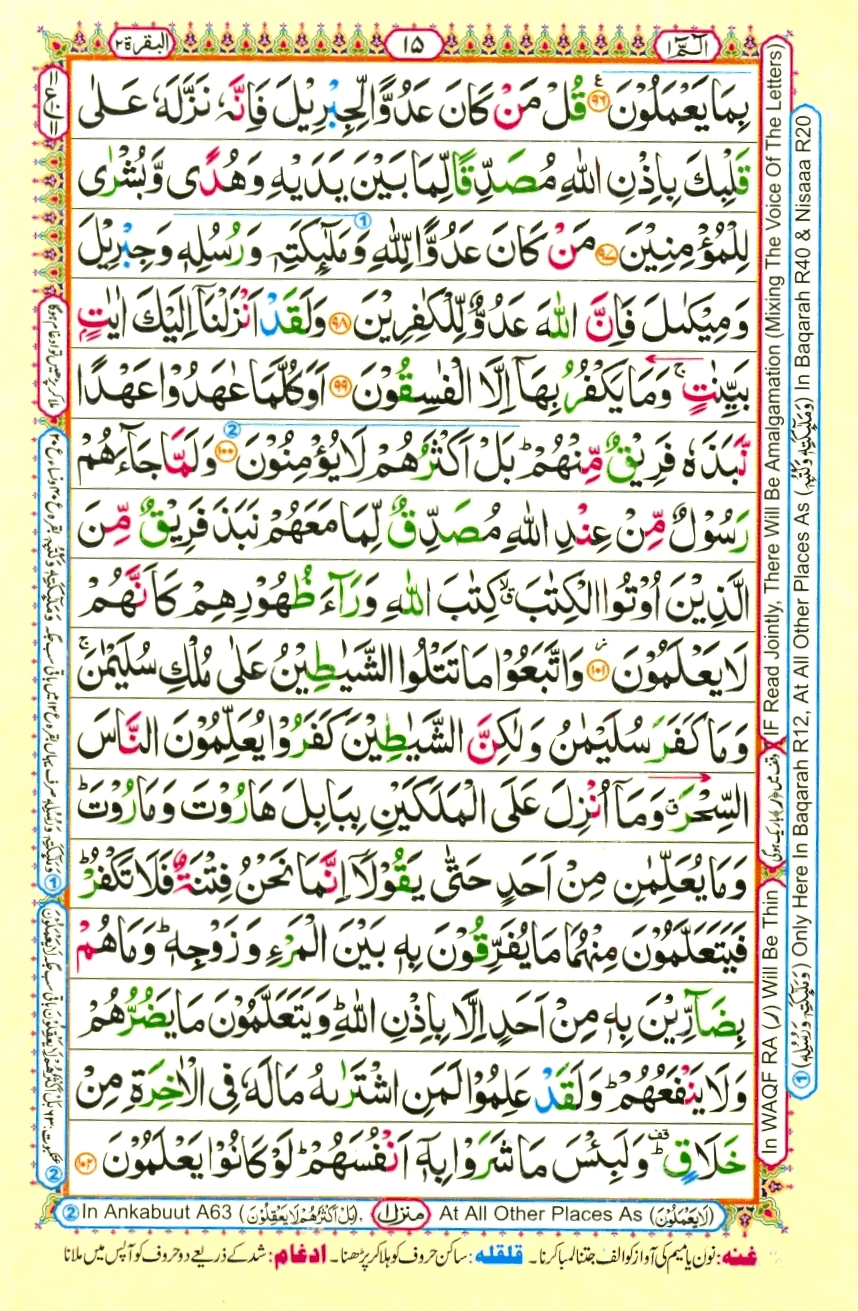 الٓمّٓ ١
١٥
البقرة ٢
بِمَا یَعْمَلُوْنَ ﴿٩٦﴾ قُلْ مَنْ كَانَ عَدُوًّا لِّجِبْرِیْلَ فَاِنَّهٗ نَزَّلَهٗ عَلٰی
قَلْبِكَ بِاِذْنِ اللّٰهِ مُصَدِّقًا لِّمَا بَیْنَ یَدَیْهِ وَهُدًی وَّبُشْرٰی
لِلْمُؤْمِنِیْنَ ﴿٩٧﴾ مَنْ كَانَ عَدُوًّا لِّلّٰهِ وَمَلٰٓىِٕكَتِهٖ وَرُسُلِهٖ وَجِبْرِیْلَ
وَمِیْكٰىلَ فَاِنَّ اللّٰهَ عَدُوٌّ لِّلْكٰفِرِیْنَ ﴿٩٨﴾ وَلَقَدْ اَنْزَلْنَاۤ اِلَیْكَ اٰیٰتٍۭ
بَیِّنٰتٍ ۚ وَمَا یَكْفُرُ بِهَاۤ اِلَّا الْفٰسِقُوْنَ ﴿٩٩﴾ اَوَكُلَّمَا عٰهَدُوْا عَهْدًا
نَّبَذَهٗ فَرِیْقٌ مِّنْهُمْ ؕ بَلْ اَكْثَرُهُمْ لَا یُؤْمِنُوْنَ ﴿١٠٠﴾ وَلَمَّا جَآءَهُمْ
رَسُوْلٌ مِّنْ عِنْدِ اللّٰهِ مُصَدِّقٌ لِّمَا مَعَهُمْ نَبَذَ فَرِیْقٌ مِّنَ
الَّذِیْنَ اُوْتُوا الْكِتٰبَ ۙۗ كِتٰبَ اللّٰهِ وَرَآءَ ظُهُوْرِهِمْ كَاَنَّهُمْ
لَا یَعْلَمُوْنَ ﴿١٠١﴾ وَاتَّبَعُوْا مَا تَتْلُوا الشَّیٰطِیْنُ عَلٰی مُلْكِ سُلَیْمٰنَ ۚ
وَمَا كَفَرَ سُلَیْمٰنُ وَلٰكِنَّ الشَّیٰطِیْنَ كَفَرُوْا یُعَلِّمُوْنَ النَّاسَ
السِّحْرَ ۗ وَمَاۤ اُنْزِلَ عَلَی الْمَلَكَیْنِ بِبَابِلَ هَارُوْتَ وَمَارُوْتَ ؕ
وَمَا یُعَلِّمٰنِ مِنْ اَحَدٍ حَتّٰی یَقُوْلَاۤ اِنَّمَا نَحْنُ فِتْنَةٌ فَلَا تَكْفُرْ ؕ
فَیَتَعَلَّمُوْنَ مِنْهُمَا مَا یُفَرِّقُوْنَ بِهٖ بَیْنَ الْمَرْءِ وَزَوْجِهٖ ؕ وَمَا هُمْ
بِضَآرِّیْنَ بِهٖ مِنْ اَحَدٍ اِلَّا بِاِذْنِ اللّٰهِ ؕ وَیَتَعَلَّمُوْنَ مَا یَضُرُّهُمْ
وَلَا یَنْفَعُهُمْ ؕ وَلَقَدْ عَلِمُوْا لَمَنِ اشْتَرٰىهُ مَا لَهٗ فِی الْاٰخِرَةِ مِنْ
خَلَاقٍ ؕ۫ وَلَبِئْسَ مَا شَرَوْا بِهٖۤ اَنْفُسَهُمْ ؕ لَوْ كَانُوْا یَعْلَمُوْنَ ﴿١٠٢﴾
In WAQF RA (ر) Will Be Thin
وقف میں (ر) باریک ہوگی
IF Read Jointly, There Will Be Amalgamation (Mixing The Voice Of The Letters)
① (وَمَلٰٓىِٕكَتِهٖ وَرُسُلِهٖ) Only Here In Baqarah R12, At All Other Places As (وَمَلٰٓىِٕكَتِهٖ وَكُتُبِهٖ) In Baqarah R40 & Nisaaa R20
ملا کر پڑھیں تو ادغام ہوگا
② In Ankabuut A63 (بَلْ اَكْثَرُهُمْ لَا یَعْقِلُوْنَ),
منزل ١
At All Other Places As (لَا یَعْلَمُوْنَ)
غنه: نون یا میم کی آواز کو الف جتنا لمبا کرنا۔ قلقله: ساکن حروف کو ہلا کر پڑھنا۔ ادغام: شد کے ذریعے دو حروف کو آپس میں ملانا